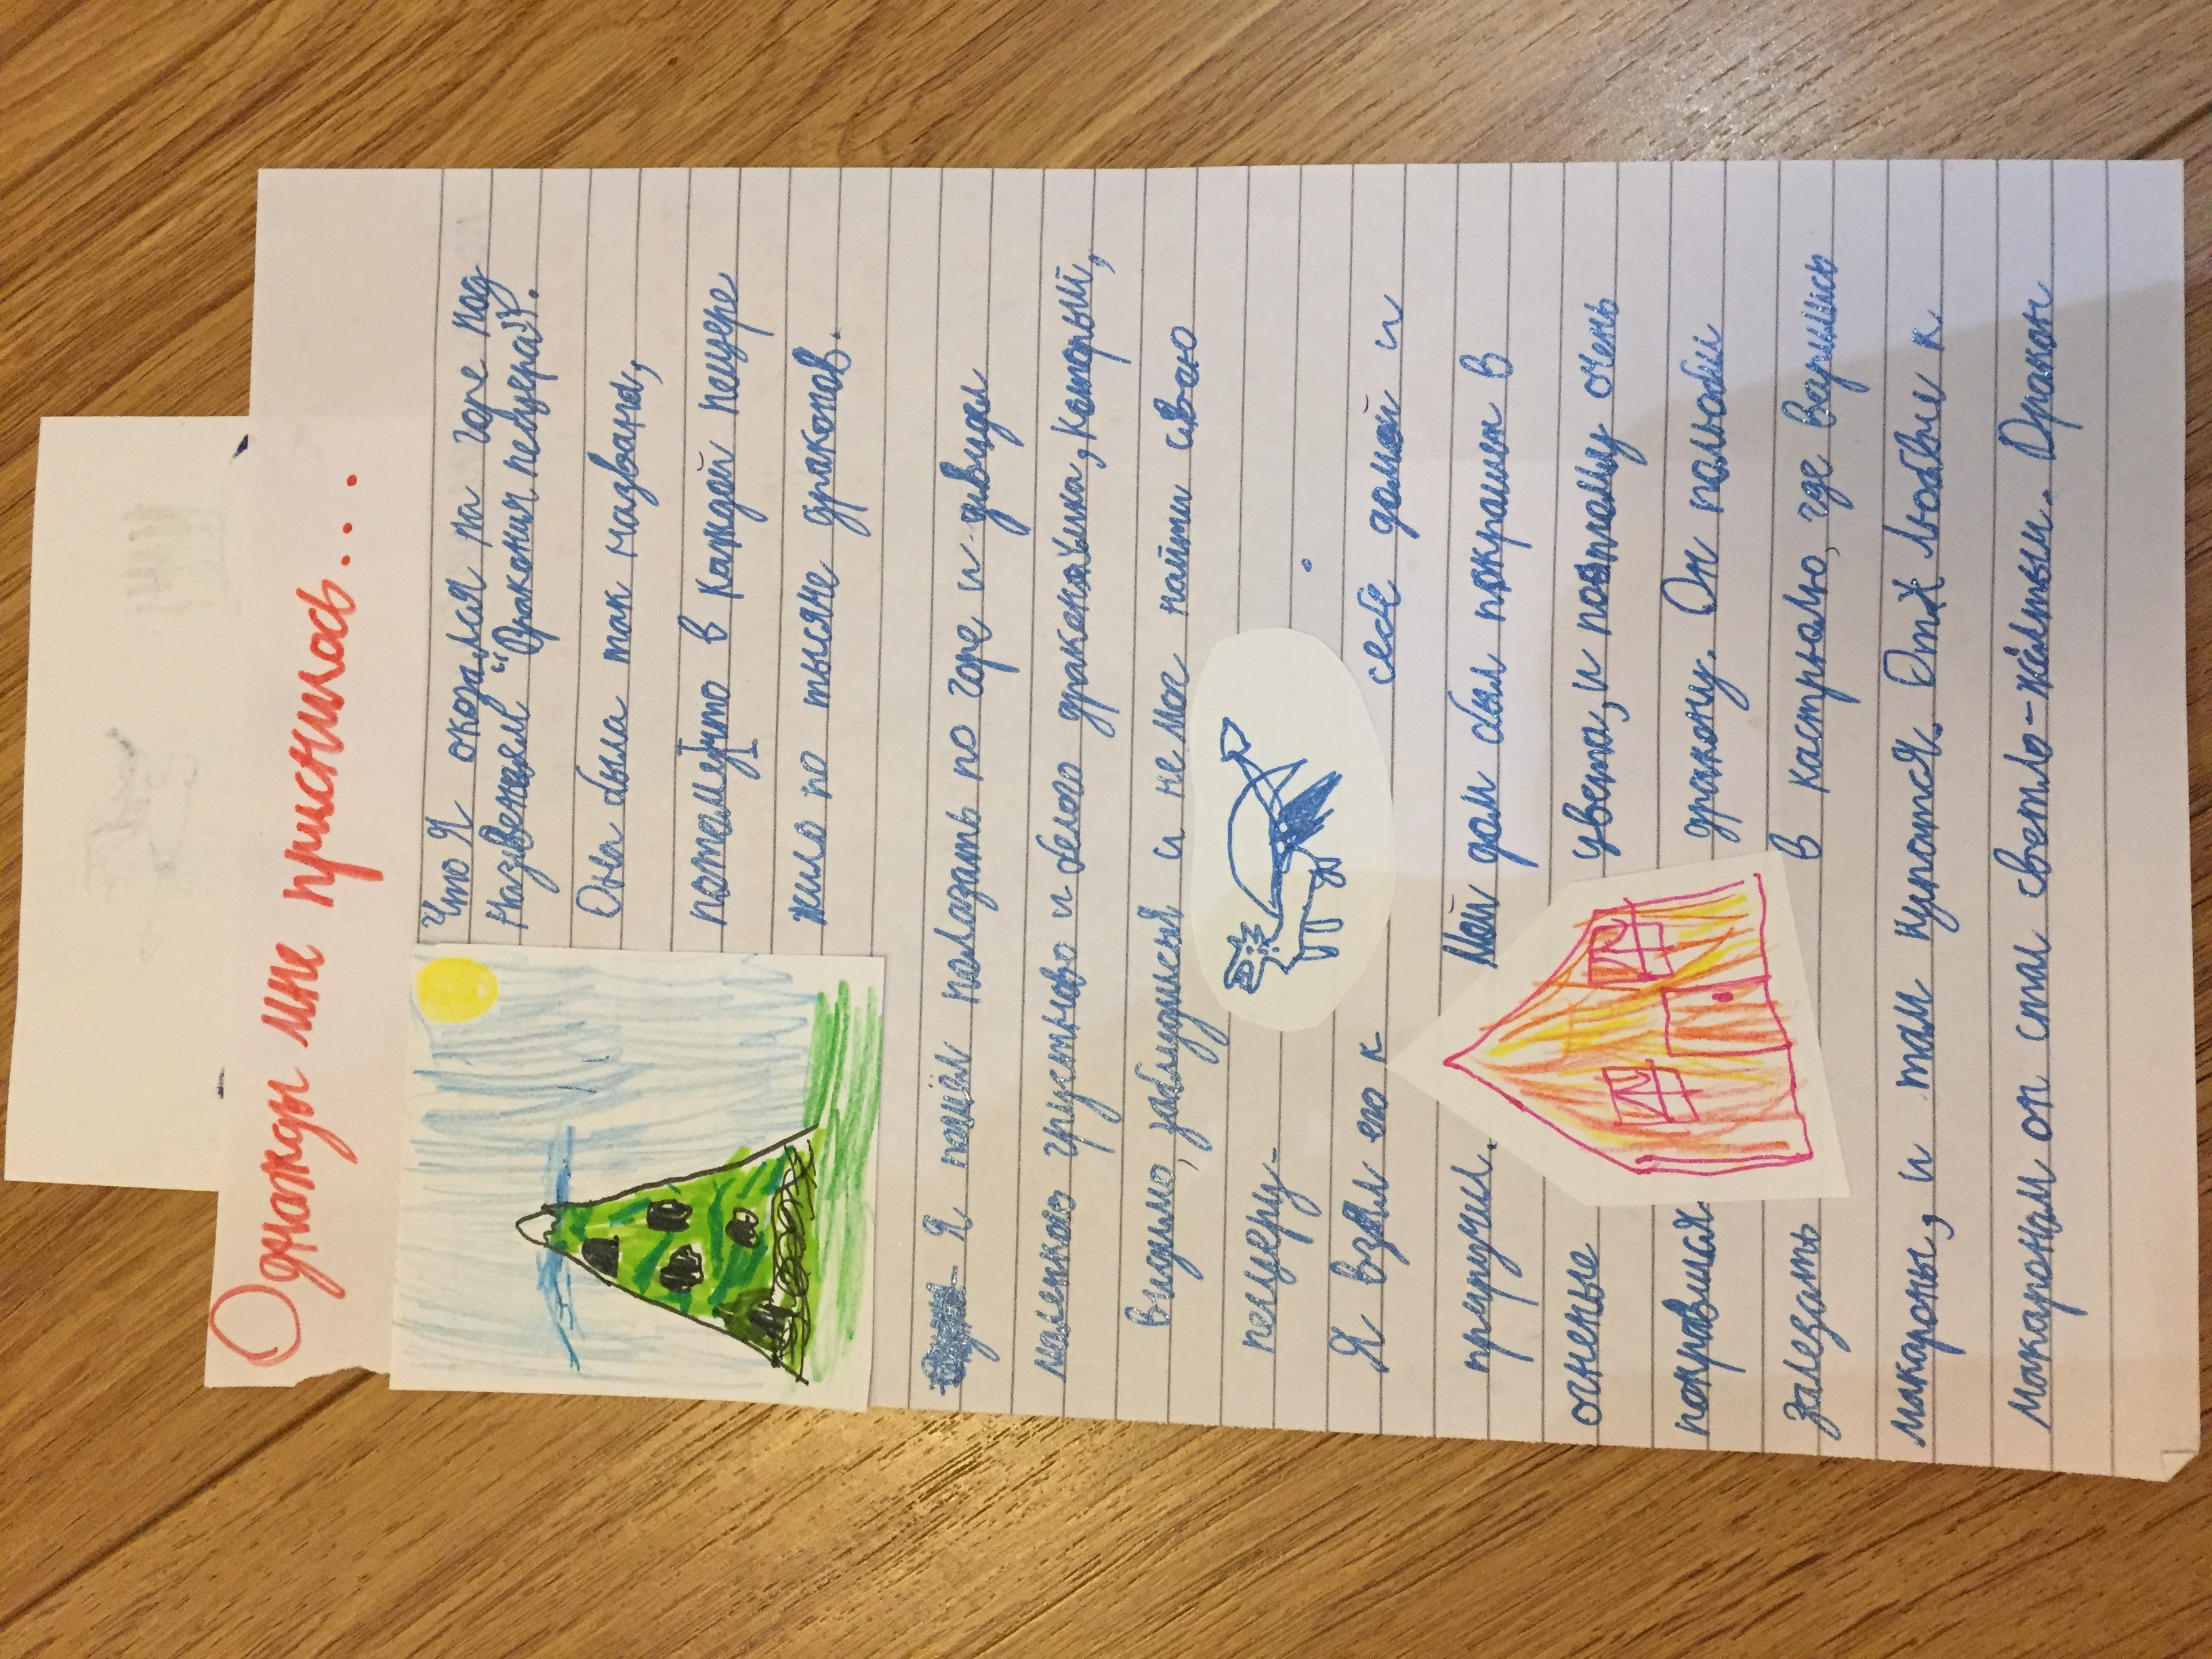 Однажды мне приснилось...
Что я оказался на горе под
названеем “Дракония педщера”.
Она была так названа,
потому что в каждой пещере
жило по тысяче драконов.
Я пошёл полазать по горе и увидел
маленкого грустного и белого дракончика, который,
видимо, заблудился и не мог найти свою
пещеру.
Я взял его к себе домой и
преручил. Мой дом был покрашен в
огненые цвета, и поэтому очень
понравился дракону. Он полюбил
залезать в кастрюлю, где варились
макароны, и там купатся. От любви к
макаронам он стал светло-жёлтым. Дракон